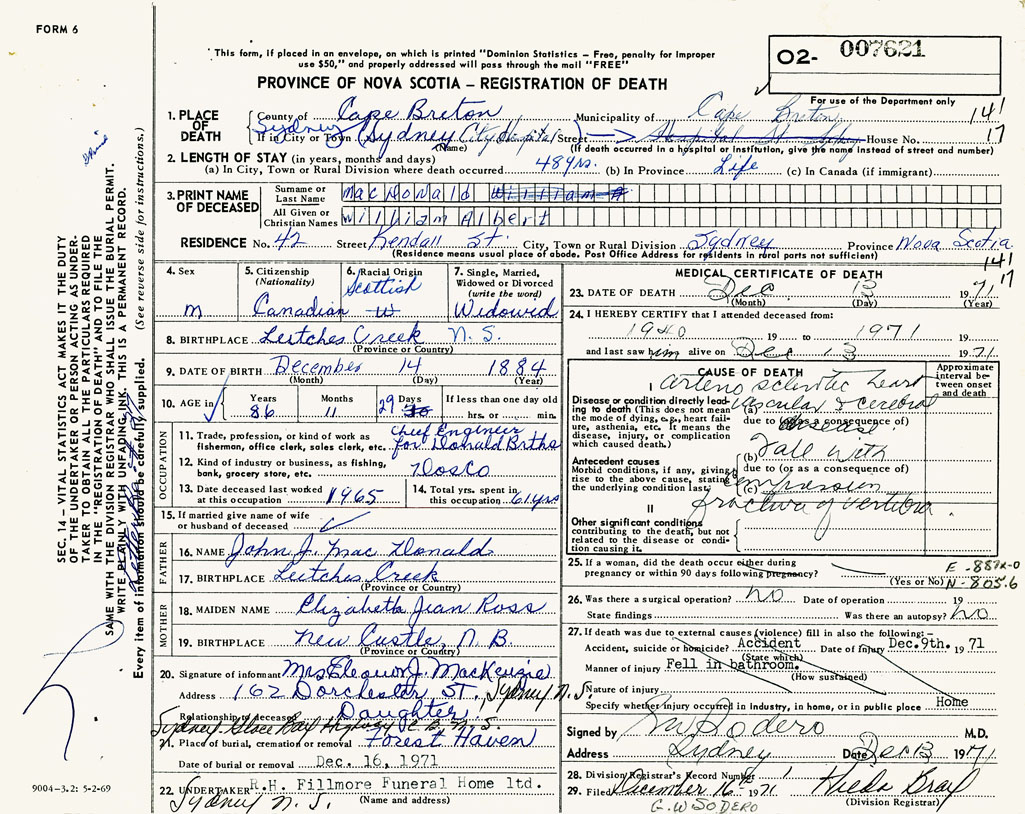 FORM 6
This form, if placed in an envelope, on which is printed "Dominion Statistics – Free, penalty for improper
use $50," and properly addressed will pass through the mail "FREE"
PROVINCE OF NOVA SCOTIA – REGISTRATION OF DEATH
O2- 007621
For use of the Department only
141
17
1. PLACE OF DEATH
County of Cape Breton Municipality of Cape Breton
If in City or Town Sydney (Sydney City Hospital Street Hospital St. Sydney House No.
(Name) (If death occurred in a hospital or institution, give the name instead of street and number)
2. LENGTH OF STAY (in years, months and days)
(a) In City, Town or Rural Division where death occurred 48 yrs. (b) In Province Life (c) In Canada (if immigrant)
3. PRINT NAME OF DECEASED
Surname or Last Name MacDonald William A
All Given or Christian Names William Albert
RESIDENCE No. 42 Street Kendall St. City, Town or Rural Division Sydney Province Nova Scotia
(Residence means usual place of abode. Post Office Address for residents in rural parts not sufficient)
141
17
4. Sex
m
5. Citizenship (Nationality)
Canadian
6. Racial Origin
Scottish
W
7. Single, Married, Widowed or Divorced (write the word)
Widowed
8. BIRTHPLACE Leitches Creek N.S.
(Province or Country)
9. DATE OF BIRTH December 14 1884
(Month) (Day) (Year)
10. AGE in Years 86 Months 11 Days 29 30 If less than one day old
hrs. or min.
OCCUPATION
11. Trade, profession, or kind of work as
fisherman, office clerk, sales clerk, etc. Chief Engineer
for Donald Brths
12. Kind of industry or business, as fishing,
bank, grocery store, etc. Dosco
13. Date deceased last worked at this occupation 1965
14. Total yrs. spent in this occupation 61 yrs
15. If married give name of wife
or husband of deceased
FATHER
16. NAME John J. MacDonald
17. BIRTHPLACE Leitches Creek
(Province or Country)
MOTHER
18. MAIDEN NAME Elizabeth Jean Ross
19. BIRTHPLACE New Castle, N.B.
(Province or Country)
20. Signature of informant Mrs Eleanor J. MacKenzie
Address 162 Dorchester St., Sydney N.S.
Relationship to deceased Daughter
Sydney Glace Bay Highway C.B. N.S.
21. Place of burial, cremation or removal Forest Haven
Date of burial or removal Dec. 16, 1971
22. UNDERTAKER R.H. Fillmore Funeral Home ltd.
Sydney N.S. (Name and address)
MEDICAL CERTIFICATE OF DEATH
23. DATE OF DEATH Dec 13 1971
(Month) (Day) (Year)
24. I HEREBY CERTIFY that I attended deceased from:
1940 19 to 1971 19
and last saw him alive on Dec 13 1971
CAUSE OF DEATH
Approximate interval between onset and death
I arterio sclerotic heart
Disease or condition directly leading to death (This does not mean the mode of dying, e.g., heart failure, asthenia, etc. It means the disease, injury, or complication which caused death.)
(a) vascular & cerebral
due to (or as a consequence of)
disease
Antecedent causes
Morbid conditions, if any, giving rise to the above cause, stating the underlying condition last
(b) Fall with
due to (or as a consequence of)
(c) compression
fracture of vertebra
II
Other significant conditions
contributing to the death, but not related to the disease or condition causing it.
25. If a woman, did the death occur either during
pregnancy or within 90 days following pregnancy?
(Yes or No)
E -884-0
N -805.6
26. Was there a surgical operation? No Date of operation 19
State findings Was there an autopsy? No
27. If death was due to external causes (violence) fill in also the following:–
Accident, suicide or homicide? Accident Date of Injury Dec.9th. 1971
(State which)
Manner of injury Fell in bathroom.
(How sustained)
Nature of injury
Specify whether injury occurred in industry, in home, or in public place Home
Signed by M Sodero M.D.
Address Sydney Date Dec 13 1971
28. Division Registrar's Record Number
29. Filed December 16th 1971 Hilda Bray
G.W SODERO (Division Registrar)
SEC. 14 – VITAL STATISTICS ACT MAKES IT THE DUTY
OF THE UNDERTAKER OR PERSON ACTING AS UNDERTAKER
TO OBTAIN ALL THE PARTICULARS REQUIRED
IN THE "REGISTRATION OF DEATH" AND TO FILE THE
SAME WITH THE DIVISION REGISTRAR WHO SHALL ISSUE THE BURIAL PERMIT.
WRITE PLAINLY WITH UNFADING INK. THIS IS A PERMANENT RECORD.
Every item of information should be carefully supplied. (See reverse side for instructions.)
9004-3.2: 5-2-69